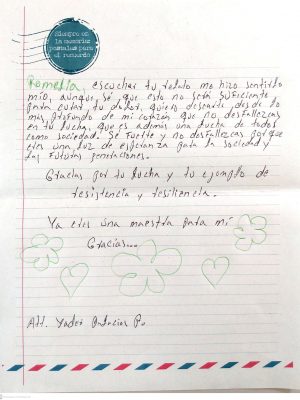 Siempre en
la memoria:
postales para
el recuerdo
Romelia, escuchar tu relato me hizo sentirlo
mío, aunque sé que esto no será suficiente
para curar tu dolor, quiero desearte desde lo
mas profundo de mi corazón que no desfallezcas
en tu lucha, que es además una lucha de todos
como sociedad. Se fuerte y no desfallezcas porque
eres una luz de esperanza para la sociedad y
las futuras generaciones.
Gracias por tu lucha y tu ejemplo de
resistencia y resiliencia.
Ya eres una maestra para mí
Gracias...
Att. Yader Palacios